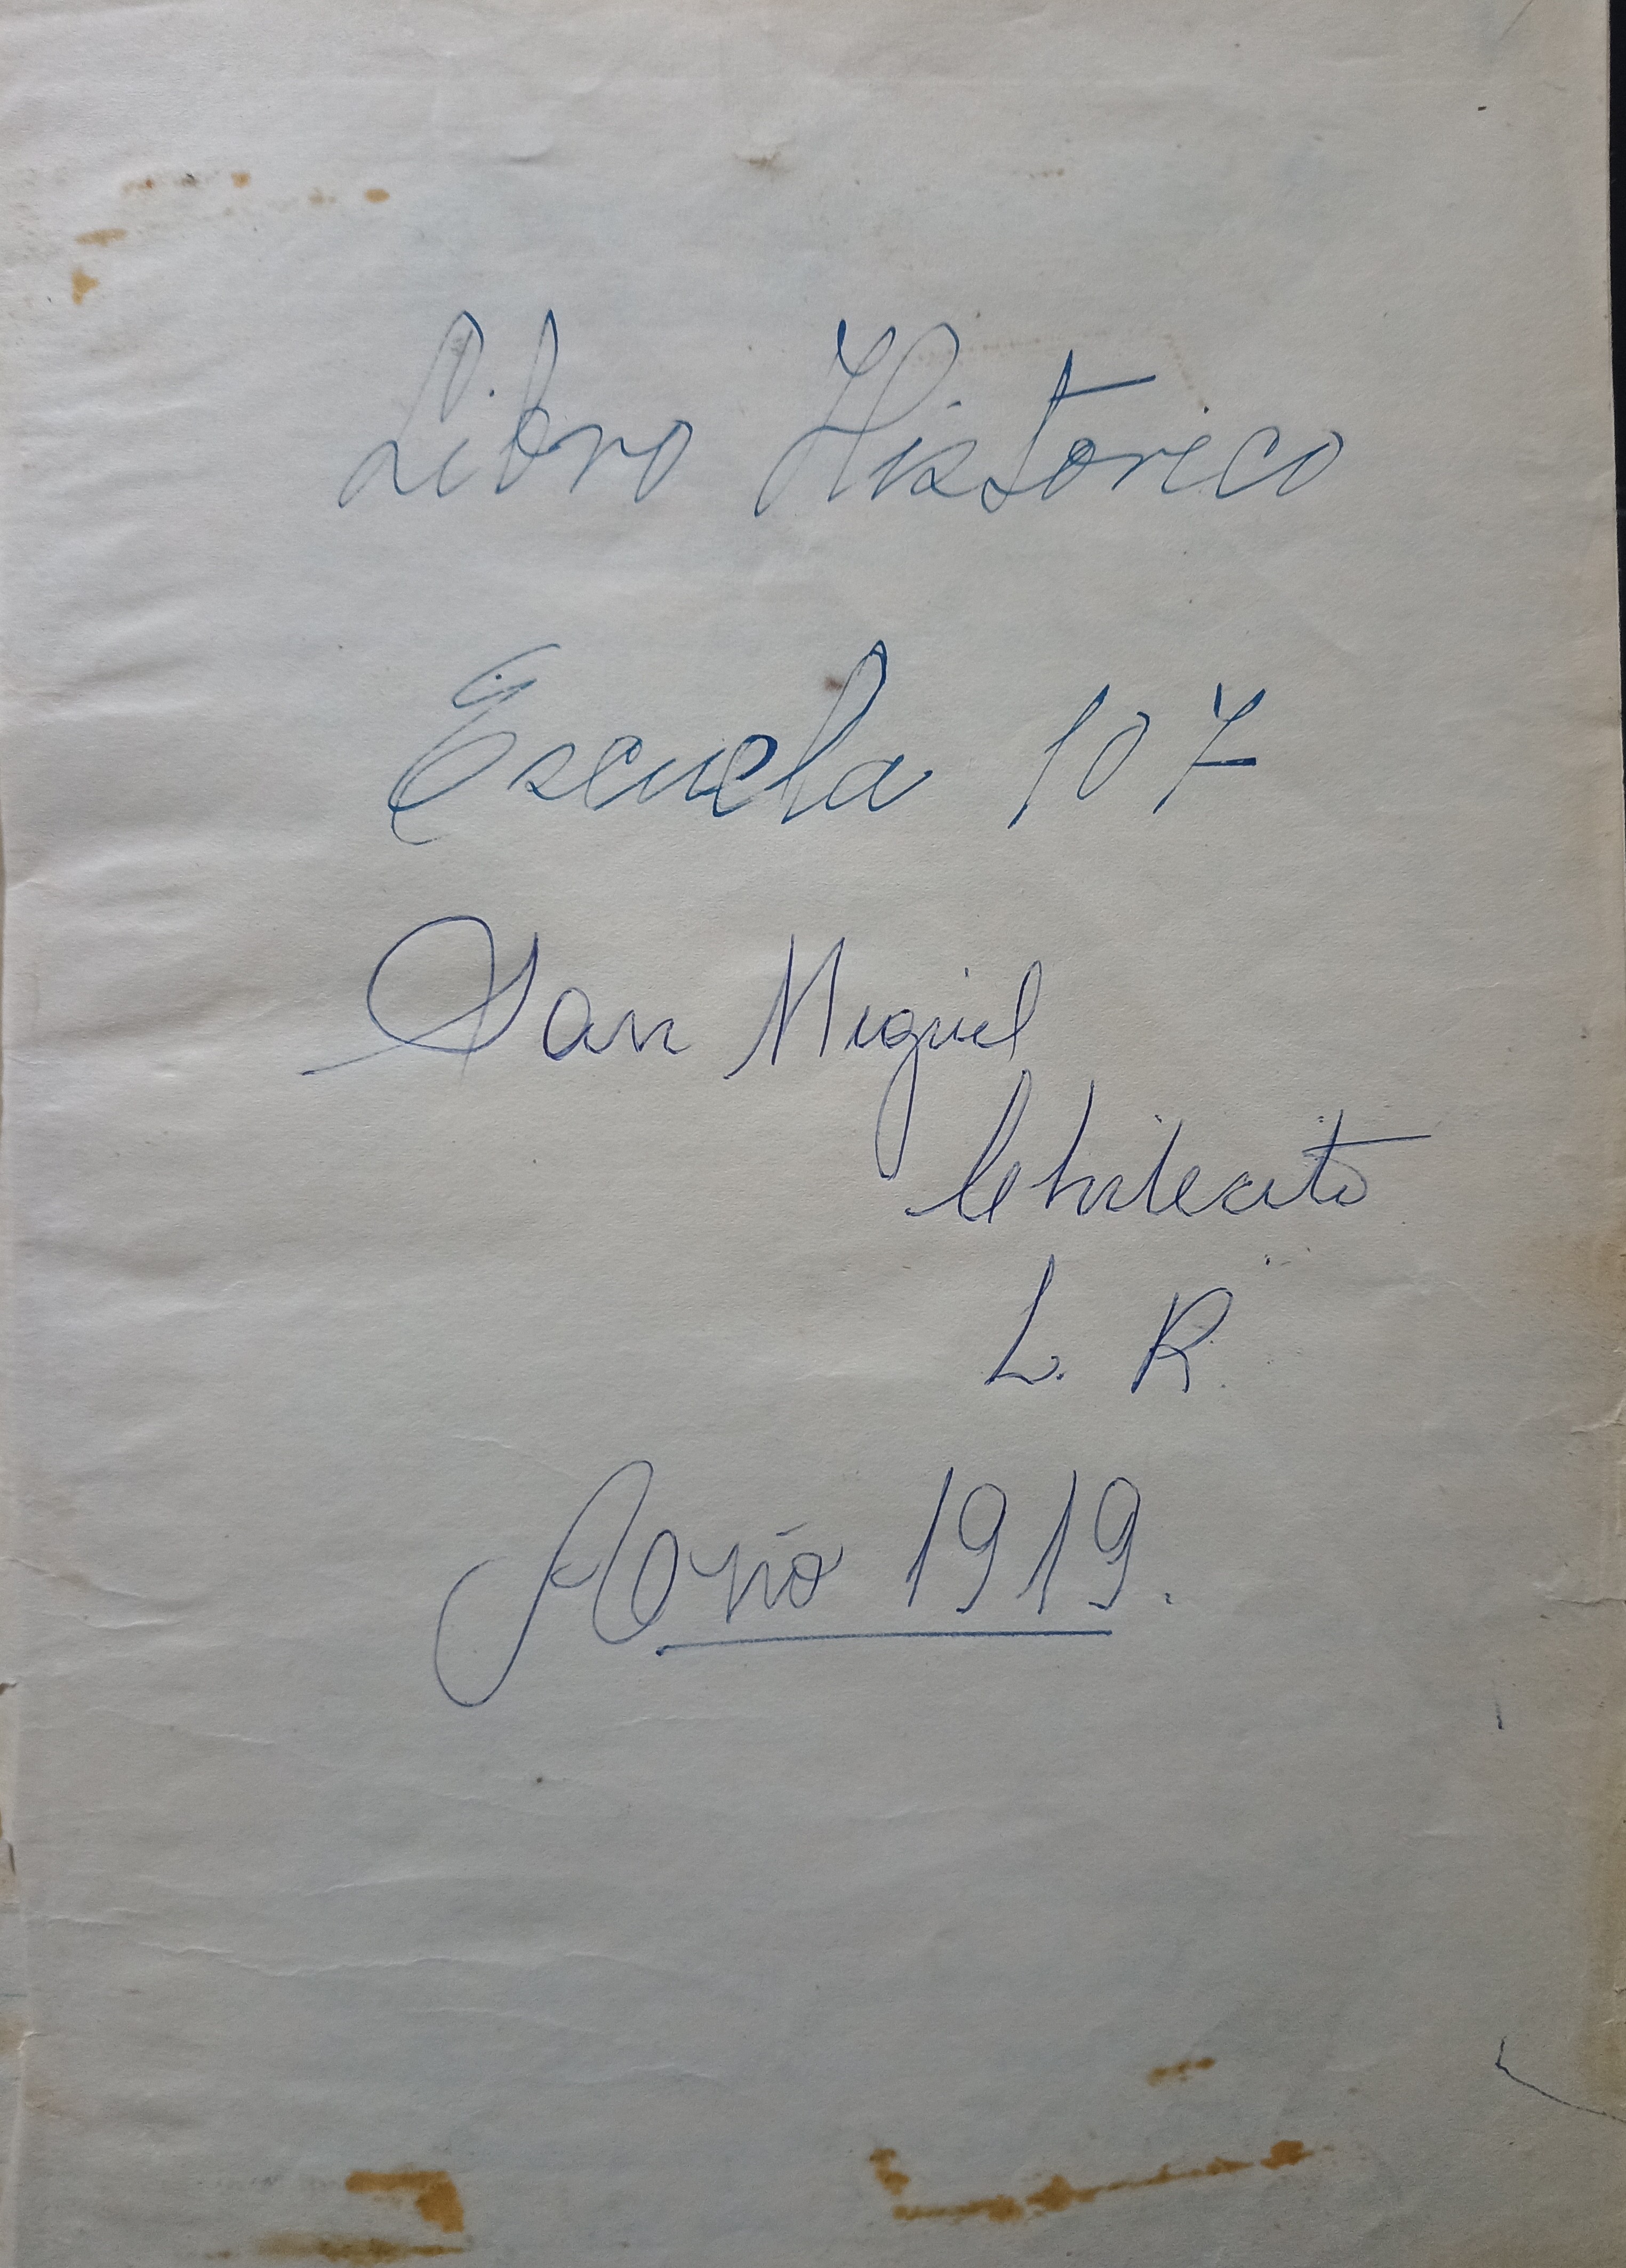 Libro Historico
Escuela 107
San Miguel
Chilecito
L. R.
Año 1919.